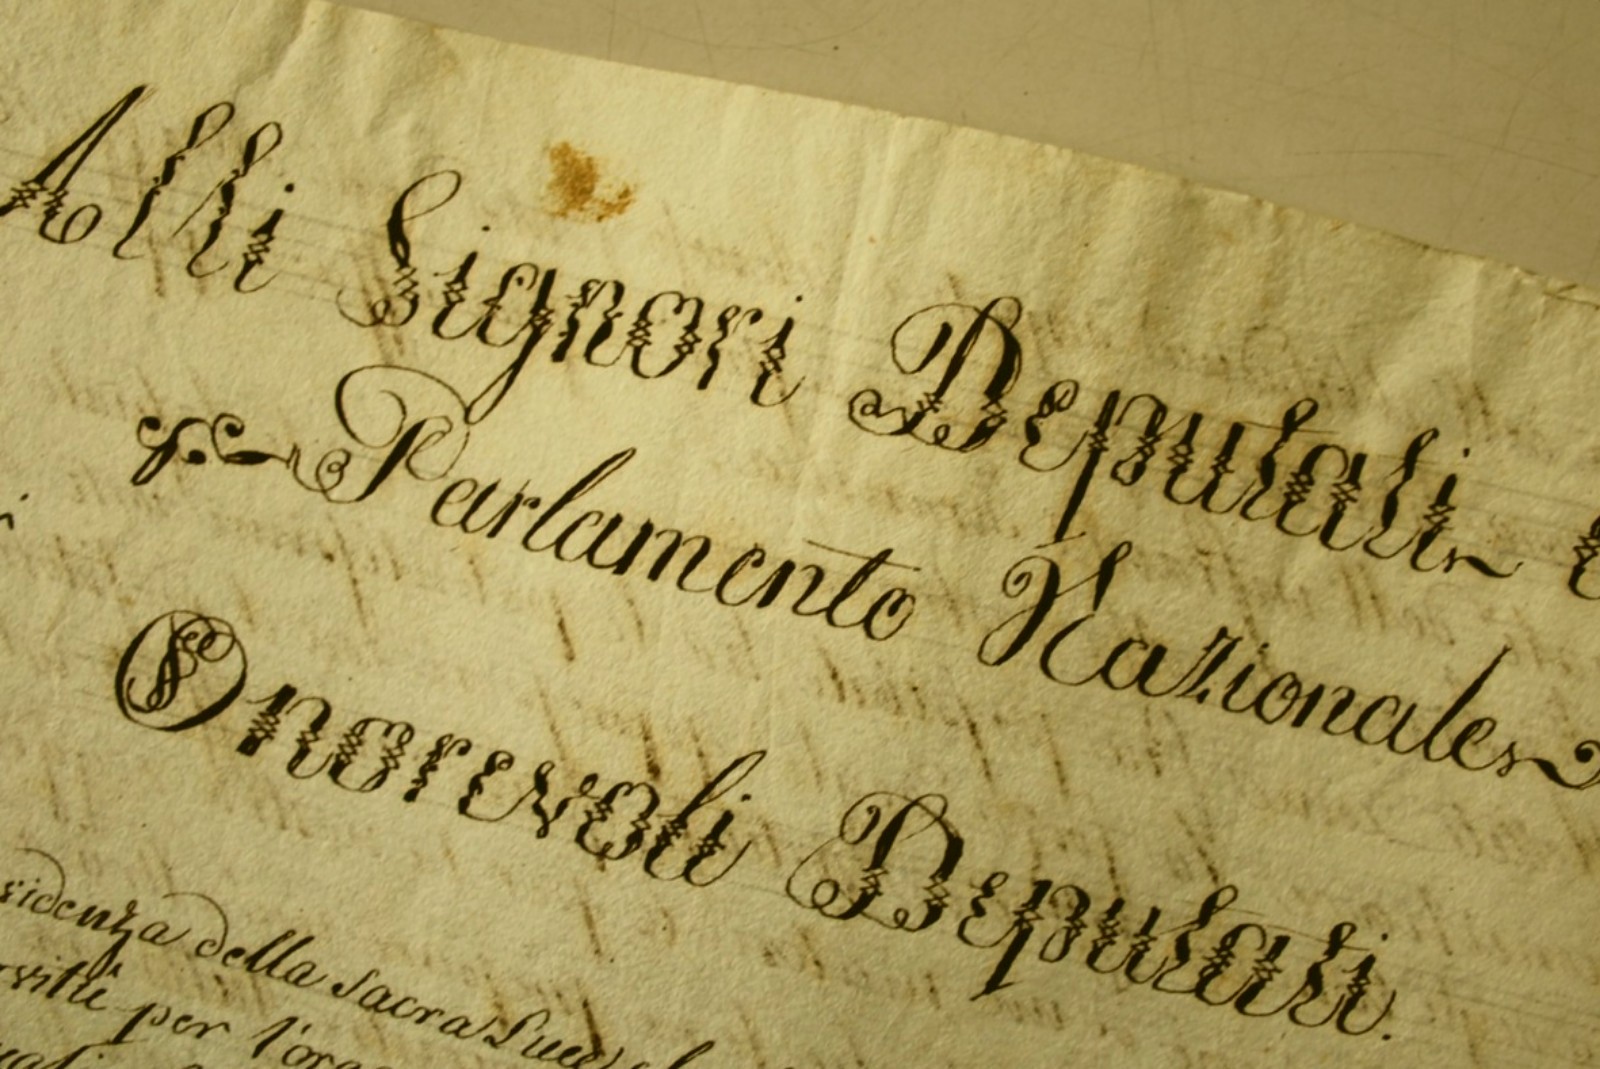 Alli Signori Deputati
Parlamento Nazionale
Onorevoli Deputati.
della Sacra Luce
per l'